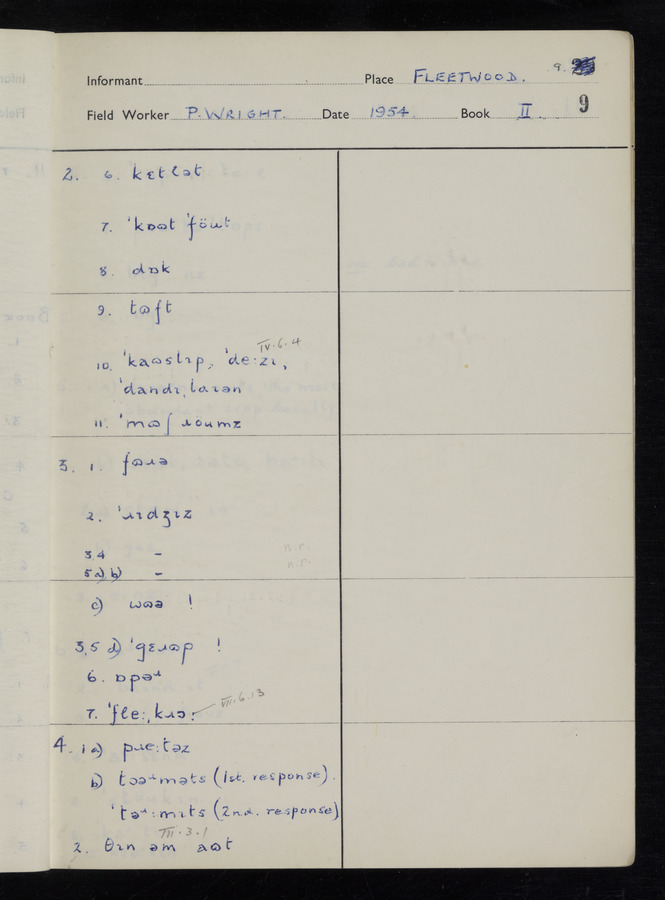 Informant Place FLEETWOOD. 9.
Field Worker P. WRIGHT. Date 1954. Book II. 9
2. 6. kɛtlət
7. ˈkɒɷt ˈföut
8. dɒk
9. tɷft
IV.6.4
10. ˈkaɷslɪp, ˈdeːzɪ,
ˈdandɪˌlaɪən
11. ˈmɷʃɹoumz
3. 1. fɷɹə
2. ˈɹɪdʒɪz
3,4 – n.r.
5 a) b) – n.r.
c) wɷə !
3,5 d) ˈgɛɹɷp !
6. ɒpəɹ
7. ˈfleːˌkɹɔː VII.6.13
4. 1 a) pɹeːtəz
b) tɔəɹməts (1st. response).
ˈtəɹːmɪts (2nd. response)
III.3.1
2. θɪn əm aɷt